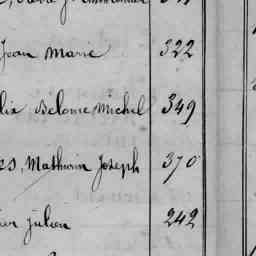 Jean Marie 322
Belome Michel 349
Mathurin Joseph 370
Julien 242